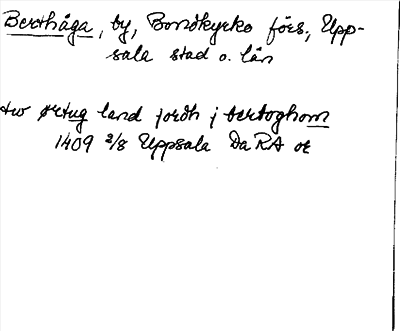 Berthåga, by, Bondkyrko förs., Upp-
sala stad o. län
tw ørtug land jordh j bertoghom
1409 2/8 Uppsala Da RA or